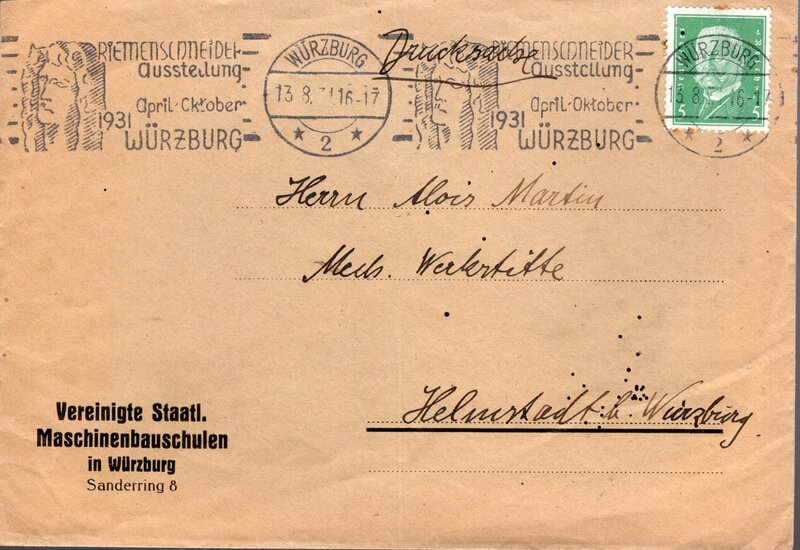 RIEMENSCHNEIDER
Ausstellung
April-Oktober
1931 WÜRZBURG
WÜRZBURG
13.8.31.16-17
2
Drucksache
RIEMENSCHNEIDER
Ausstellung
April-Oktober
1931 WÜRZBURG
WÜRZBURG
13.8. 16-1
2
5 5
Herrn Alois Martin
Mech. Werkstätte
Helmstadt b. Würzburg
Vereinigte Staatl.
Maschinenbauschulen
in Würzburg
Sanderring 8